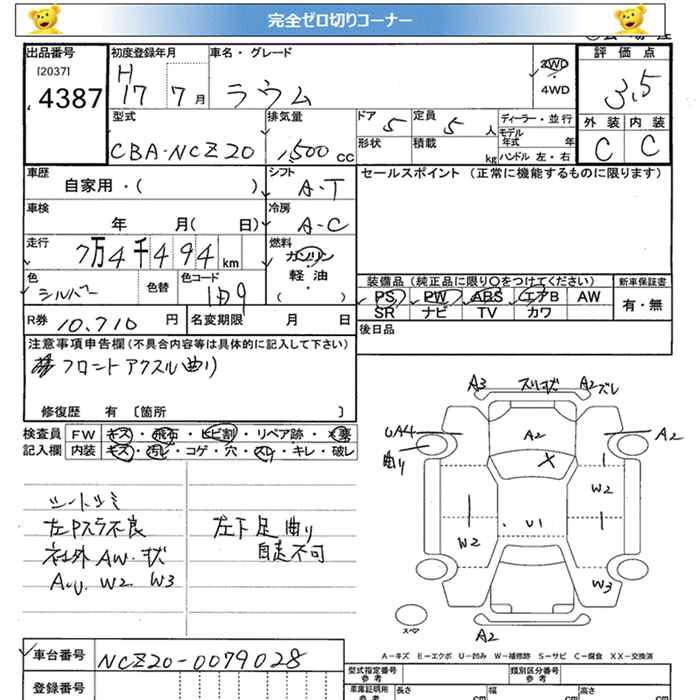 完全ゼロ切りコーナー
出品番号 初度登録年月 車名・グレード 評価点
[2037] 4387 H17 7月 ラウム 2WD 4WD 3.5
型式 排気量 ドア 5 定員 5 人 ディーラー・並行 外装 内装
CBA-NCZ20 1,500 cc 形状 積載 kg モデル年式 年 ハンドル 左・右 C C
車歴 シフト セールスポイント (正常に機能するものに限ります)
自家用・( ) A-T
車検 冷房
年 月( 日) A-C
走行 燃料
7万4千494 km ガソリン
色 色替 色コード 軽・油 装備品 (純正品に限り○をつけてください) 新車保証書
シルバー 1D9 ( ・ ) PS PW ABS エアB AW 有・無
SR ナビ TV カワ
R券 10,710 円 名変期限 月 日 後日品
注意事項申告欄(不具合内容等は具体的に記入して下さい)
フロントアクスル曲り
修復歴 有 〔箇所 〕
検査員 FW キズ・飛石・ヒビ割・リペア跡・×要
記入欄 内装 キズ・汚レ・コゲ・穴・スレ・キレ・破レ
A3 スリ状 A2 A2ズレ
UA4 A2 A2
曲り X
シートシミ W2
左Pスラ不良 左下足曲り U1
社外AW.状 自走不可 W2
A.U. W2 W3 W3
スペア A2
A-キズ E-エクボ U-凹み W-補修跡 S-サビ C-腐食 XX-交換済
車台番号 NCZ20-0079028 型式指定番号 参考 類別区分番号 参考
登録番号 車庫証明用 参考 長さ cm 幅 cm 高さ cm